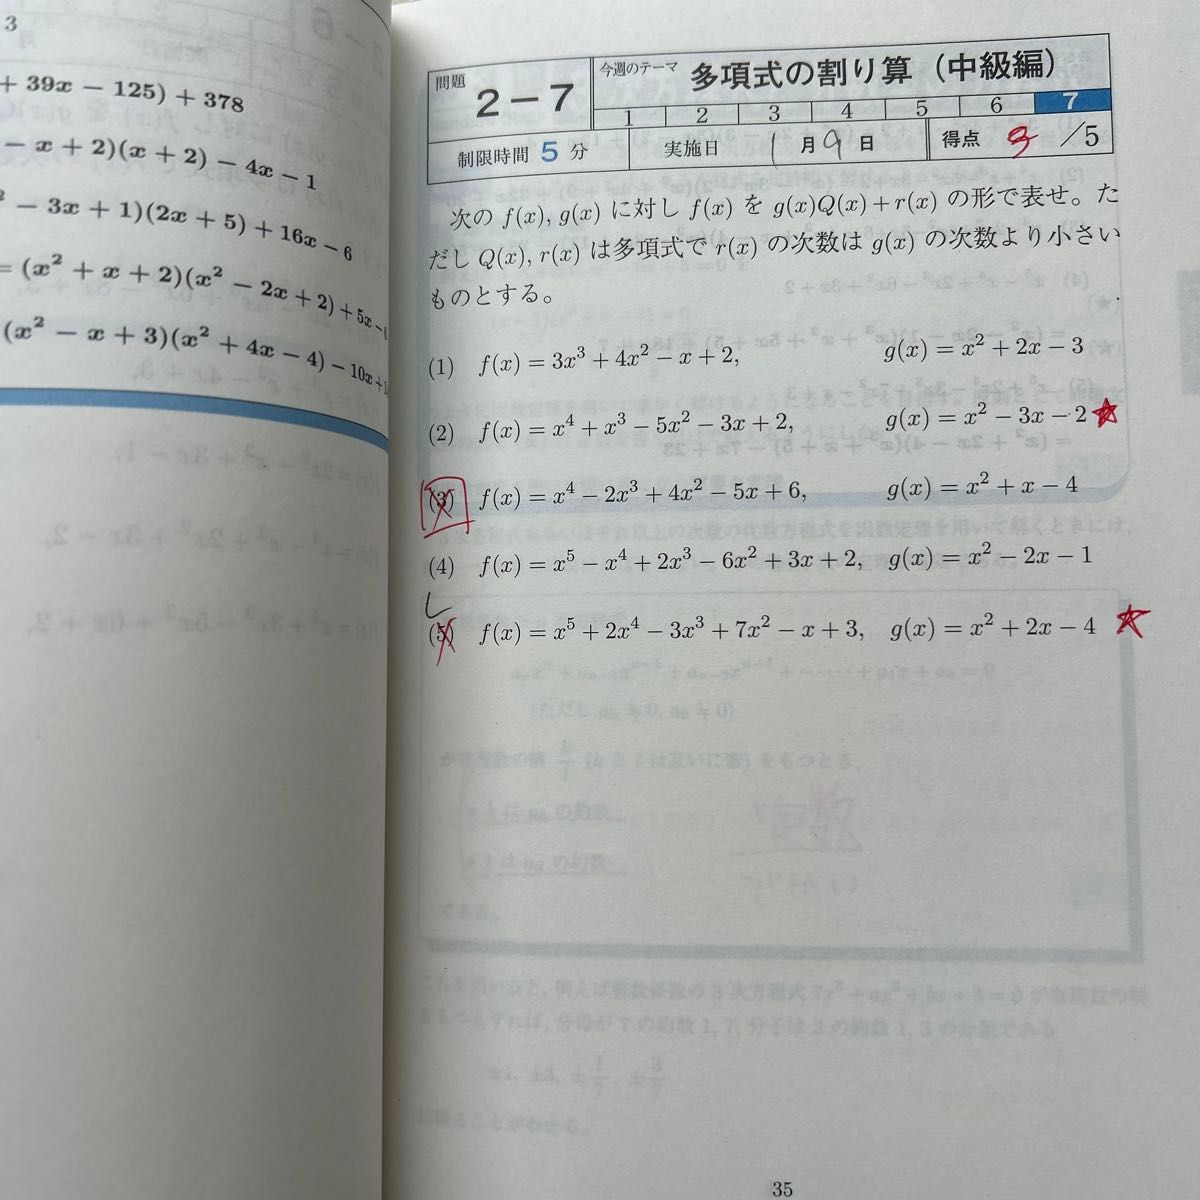 3
+ 39x − 125) + 378
− x + 2)(x + 2) − 4x − 1
− 3x + 1)(2x + 5) + 16x − 6
= (x² + x + 2)(x² − 2x + 2) + 5x −
(x² − x + 3)(x² + 4x − 4) − 10x +
問題 2−7
今週のテーマ 多項式の割り算（中級編）
1 2 3 4 5 6 7
制限時間 5 分 実施日 1 月 9 日 得点 3 /5
次の f(x), g(x) に対し f(x) を g(x)Q(x)+r(x) の形で表せ。た
だし Q(x), r(x) は多項式で r(x) の次数は g(x) の次数より小さい
ものとする。
(1) f(x) = 3x³ + 4x² − x + 2, g(x) = x² + 2x − 3
(2) f(x) = x⁴ + x³ − 5x² − 3x + 2, g(x) = x² − 3x − 2
(3) f(x) = x⁴ − 2x³ + 4x² − 5x + 6, g(x) = x² + x − 4
(4) f(x) = x⁵ − x⁴ + 2x³ − 6x² + 3x + 2, g(x) = x² − 2x − 1
(5) f(x) = x⁵ + 2x⁴ − 3x³ + 7x² − x + 3, g(x) = x² + 2x − 4
35